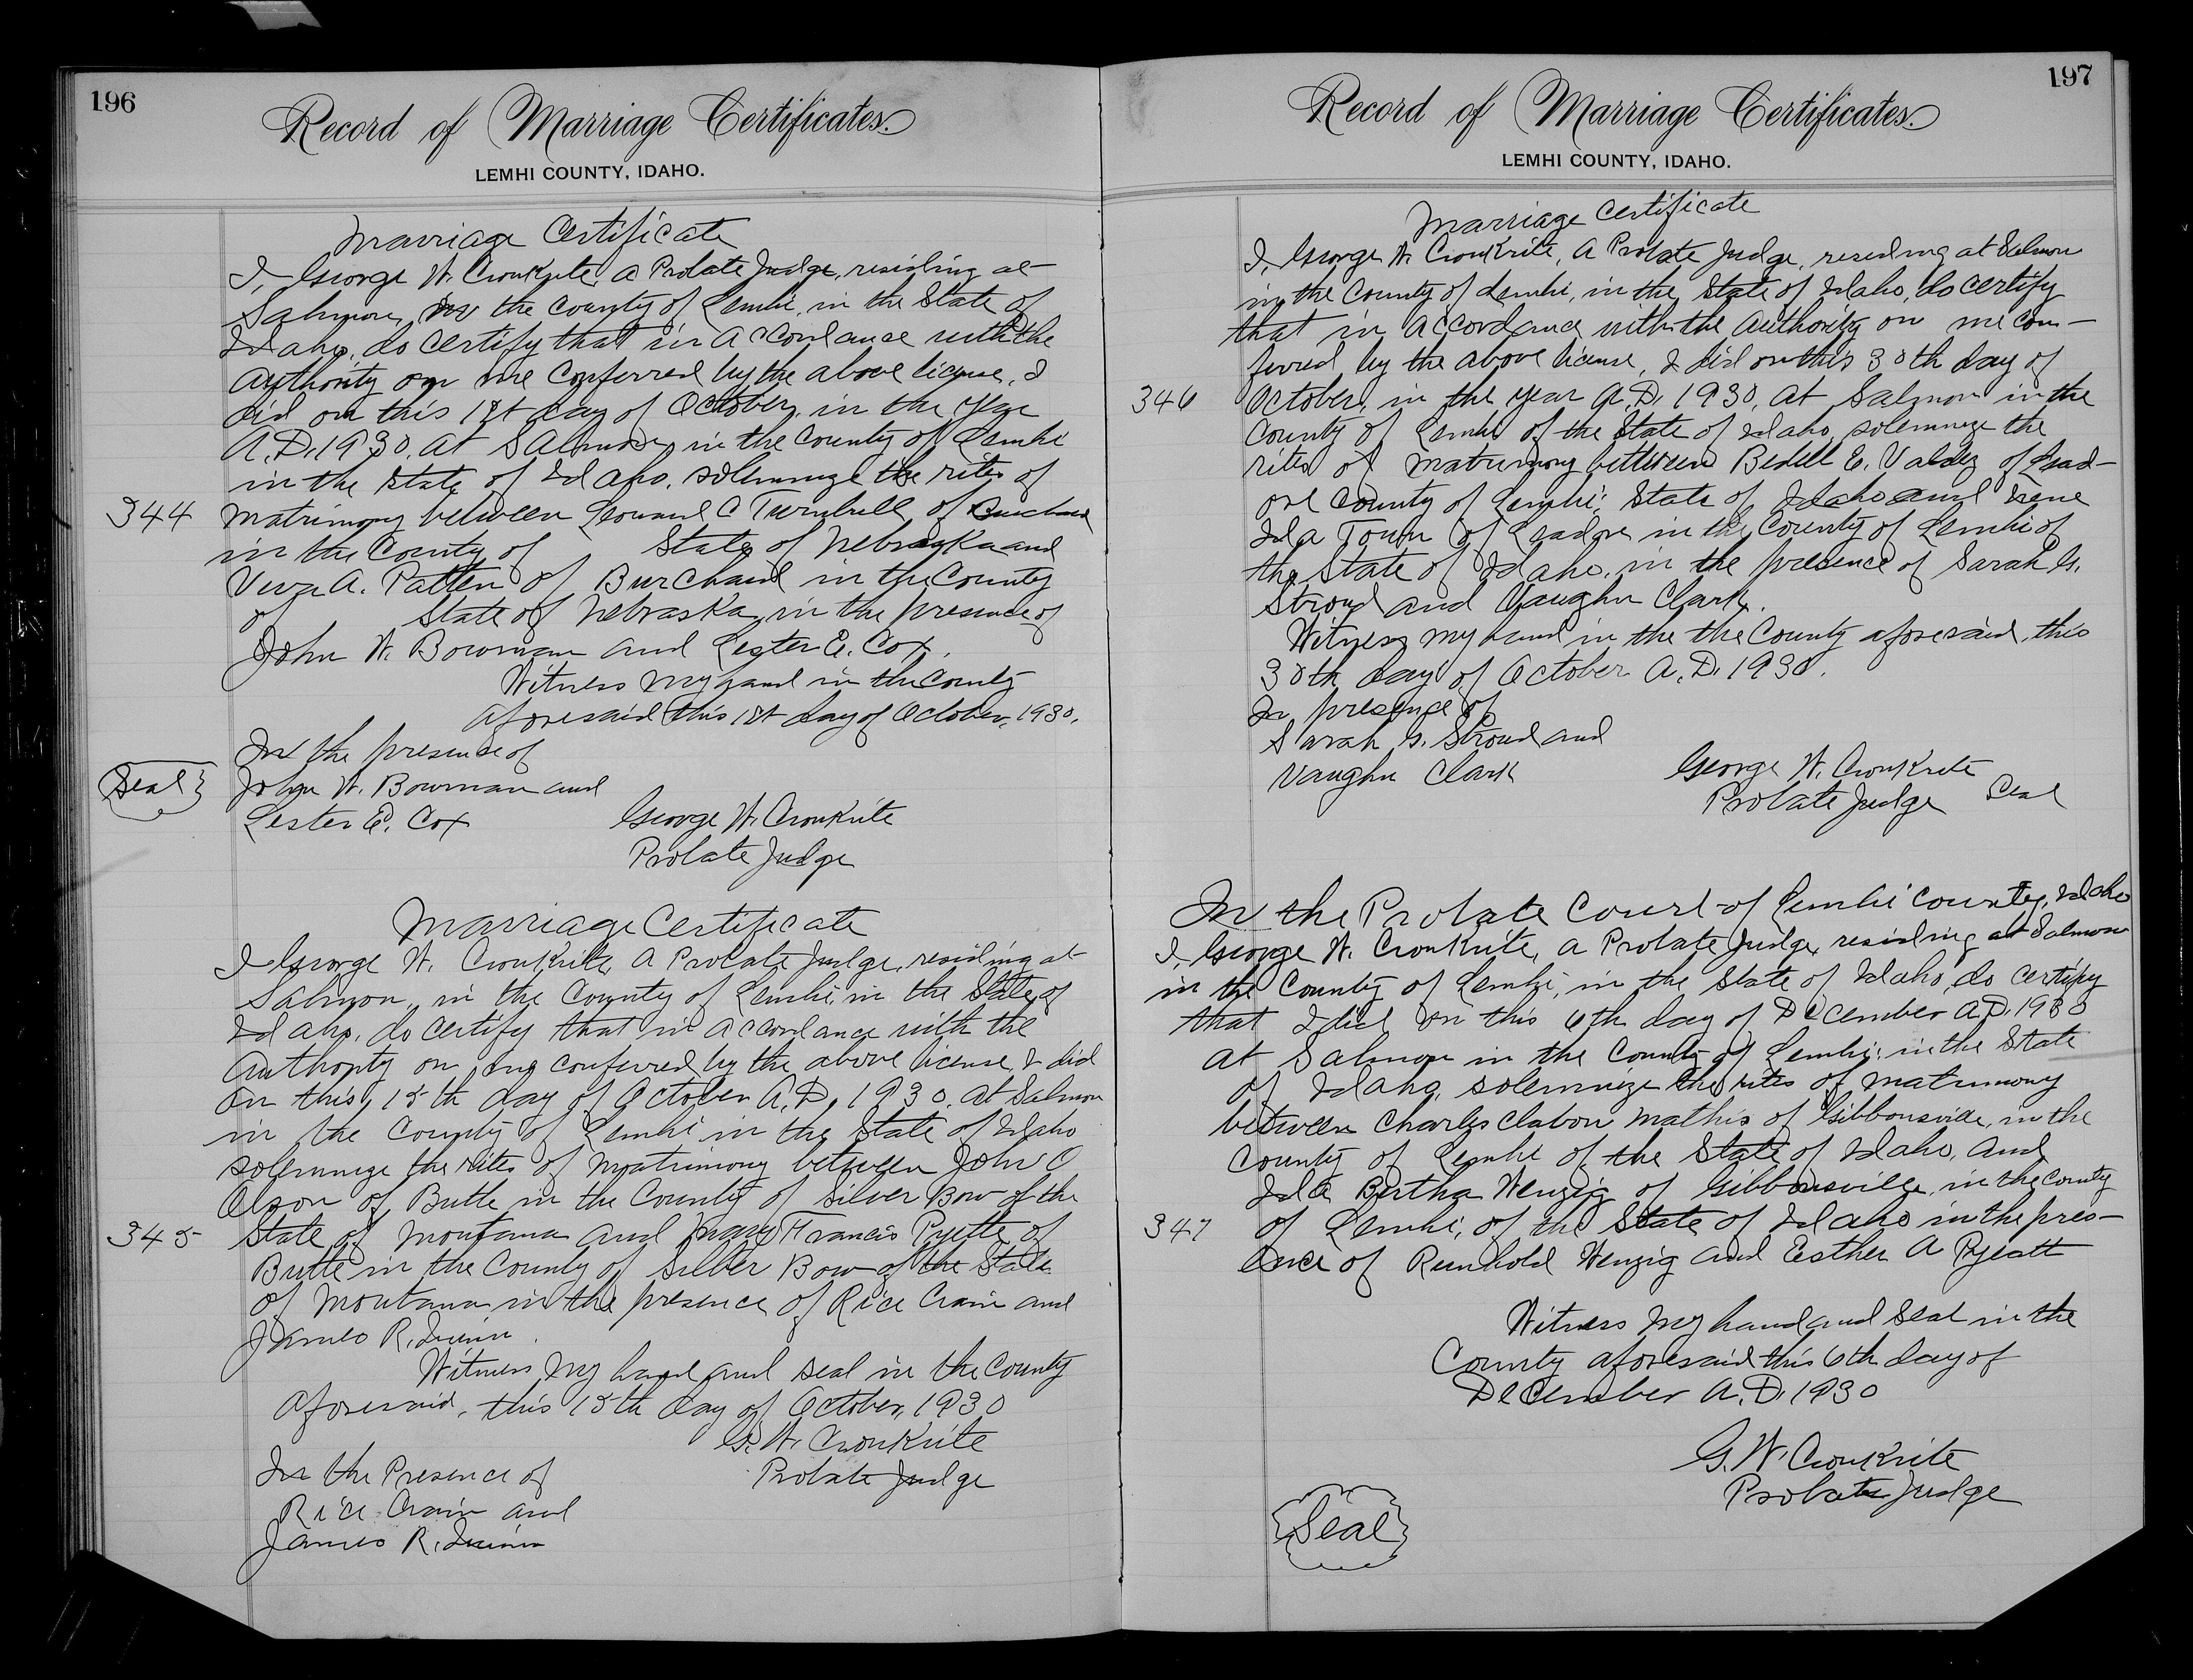 196
Record of Marriage Certificates.
LEMHI COUNTY, IDAHO.
Marriage Certificate
I, George W. Cronkrite, a Probate Judge, residing at
Salmon, in the County of Lemhi, in the State of
Idaho, do certify that in accordance with the
Authority on me conferred by the above license, I
did on this 1st day of October, in the year
A.D. 1930, at Salmon, in the County of Lemhi
in the State of Idaho, solemnize the rites of
344 matrimony between Leonard C Turnbull of Burchard
in the County of State of Nebraska and
A. Patten of Burchard in the County
of State of Nebraska, in the presence of
John W. Bowman and Lester E. Cox.
Witness my hand in the County
aforesaid this 1st day of October, 1930.
In the presence of
Seal John W. Bowman and
Lester E. Cox
George W. Cronkrite
Probate Judge
Marriage Certificate
I George W. Cronkrite, a Probate Judge, residing at
Salmon, in the County of Lemhi, in the State of
Idaho, do certify that in accordance with the
Authority on me conferred by the above license, I did
on this 15th day of October A.D. 1930, at Salmon
in the County of Lemhi in the State of Idaho
solemnize the rites of matrimony between John O
Olson of Butte in the County of Silver Bow of the
345 State of Montana and Mary Francis of
Butte in the County of Silver Bow of the State
of Montana in the presence of Rice Crain and
James R.
Witness my hand and seal in the County
aforesaid, this 15th day of October, 1930
G. W. Cronkrite
Probate Judge
In the Presence of
Rice Crain and
James R.
197
Record of Marriage Certificates.
LEMHI COUNTY, IDAHO.
Marriage Certificate
I, George W. Cronkrite, A Probate Judge, residing at Salmon
in the County of Lemhi, in the State of Idaho, do certify
that in accordance with the authority on me con-
ferred by the above license, I did on this 30th day of
346 October, in the year A.D. 1930, at Salmon in the
County of Lemhi of the State of Idaho, solemnize the
rites of matrimony between Bedell E. Valdez of Lead-
ore County of Lemhi, State of Idaho and Irene
Ida of Leadore in the County of Lemhi of
the State of Idaho, in the presence of Sarah G.
Stroud and Vaughn Clark.
Witness my hand in the the County aforesaid, this
30th day of October A.D. 1930.
In presence of
Sarah G. Stroud and
Vaughn Clark
George W. Cronkrite
Probate Judge Seal
In the Probate Court of Lemhi County, Idaho
I, George W. Cronkrite, a Probate Judge, residing at Salmon
in the County of Lemhi, in the State of Idaho, do certify
that I did on this 6th day of December A.D. 1930
at Salmon in the County of Lemhi in the State
of Idaho, solemnize the rites of matrimony
between Charles Clabon Mathis of Gibbonsville, in the
County of Lemhi of the State of Idaho, and
Ida Bertha Wenzig of Gibbonsville, in the County
347 of Lemhi, of the State of Idaho in the pres-
ence of Reinhold Wenzig and Esther A Pyeatt
Witness my hand and Seal in the
County aforesaid this 6th day of
December A.D. 1930
G. W. Cronkrite
Probate Judge
Seal